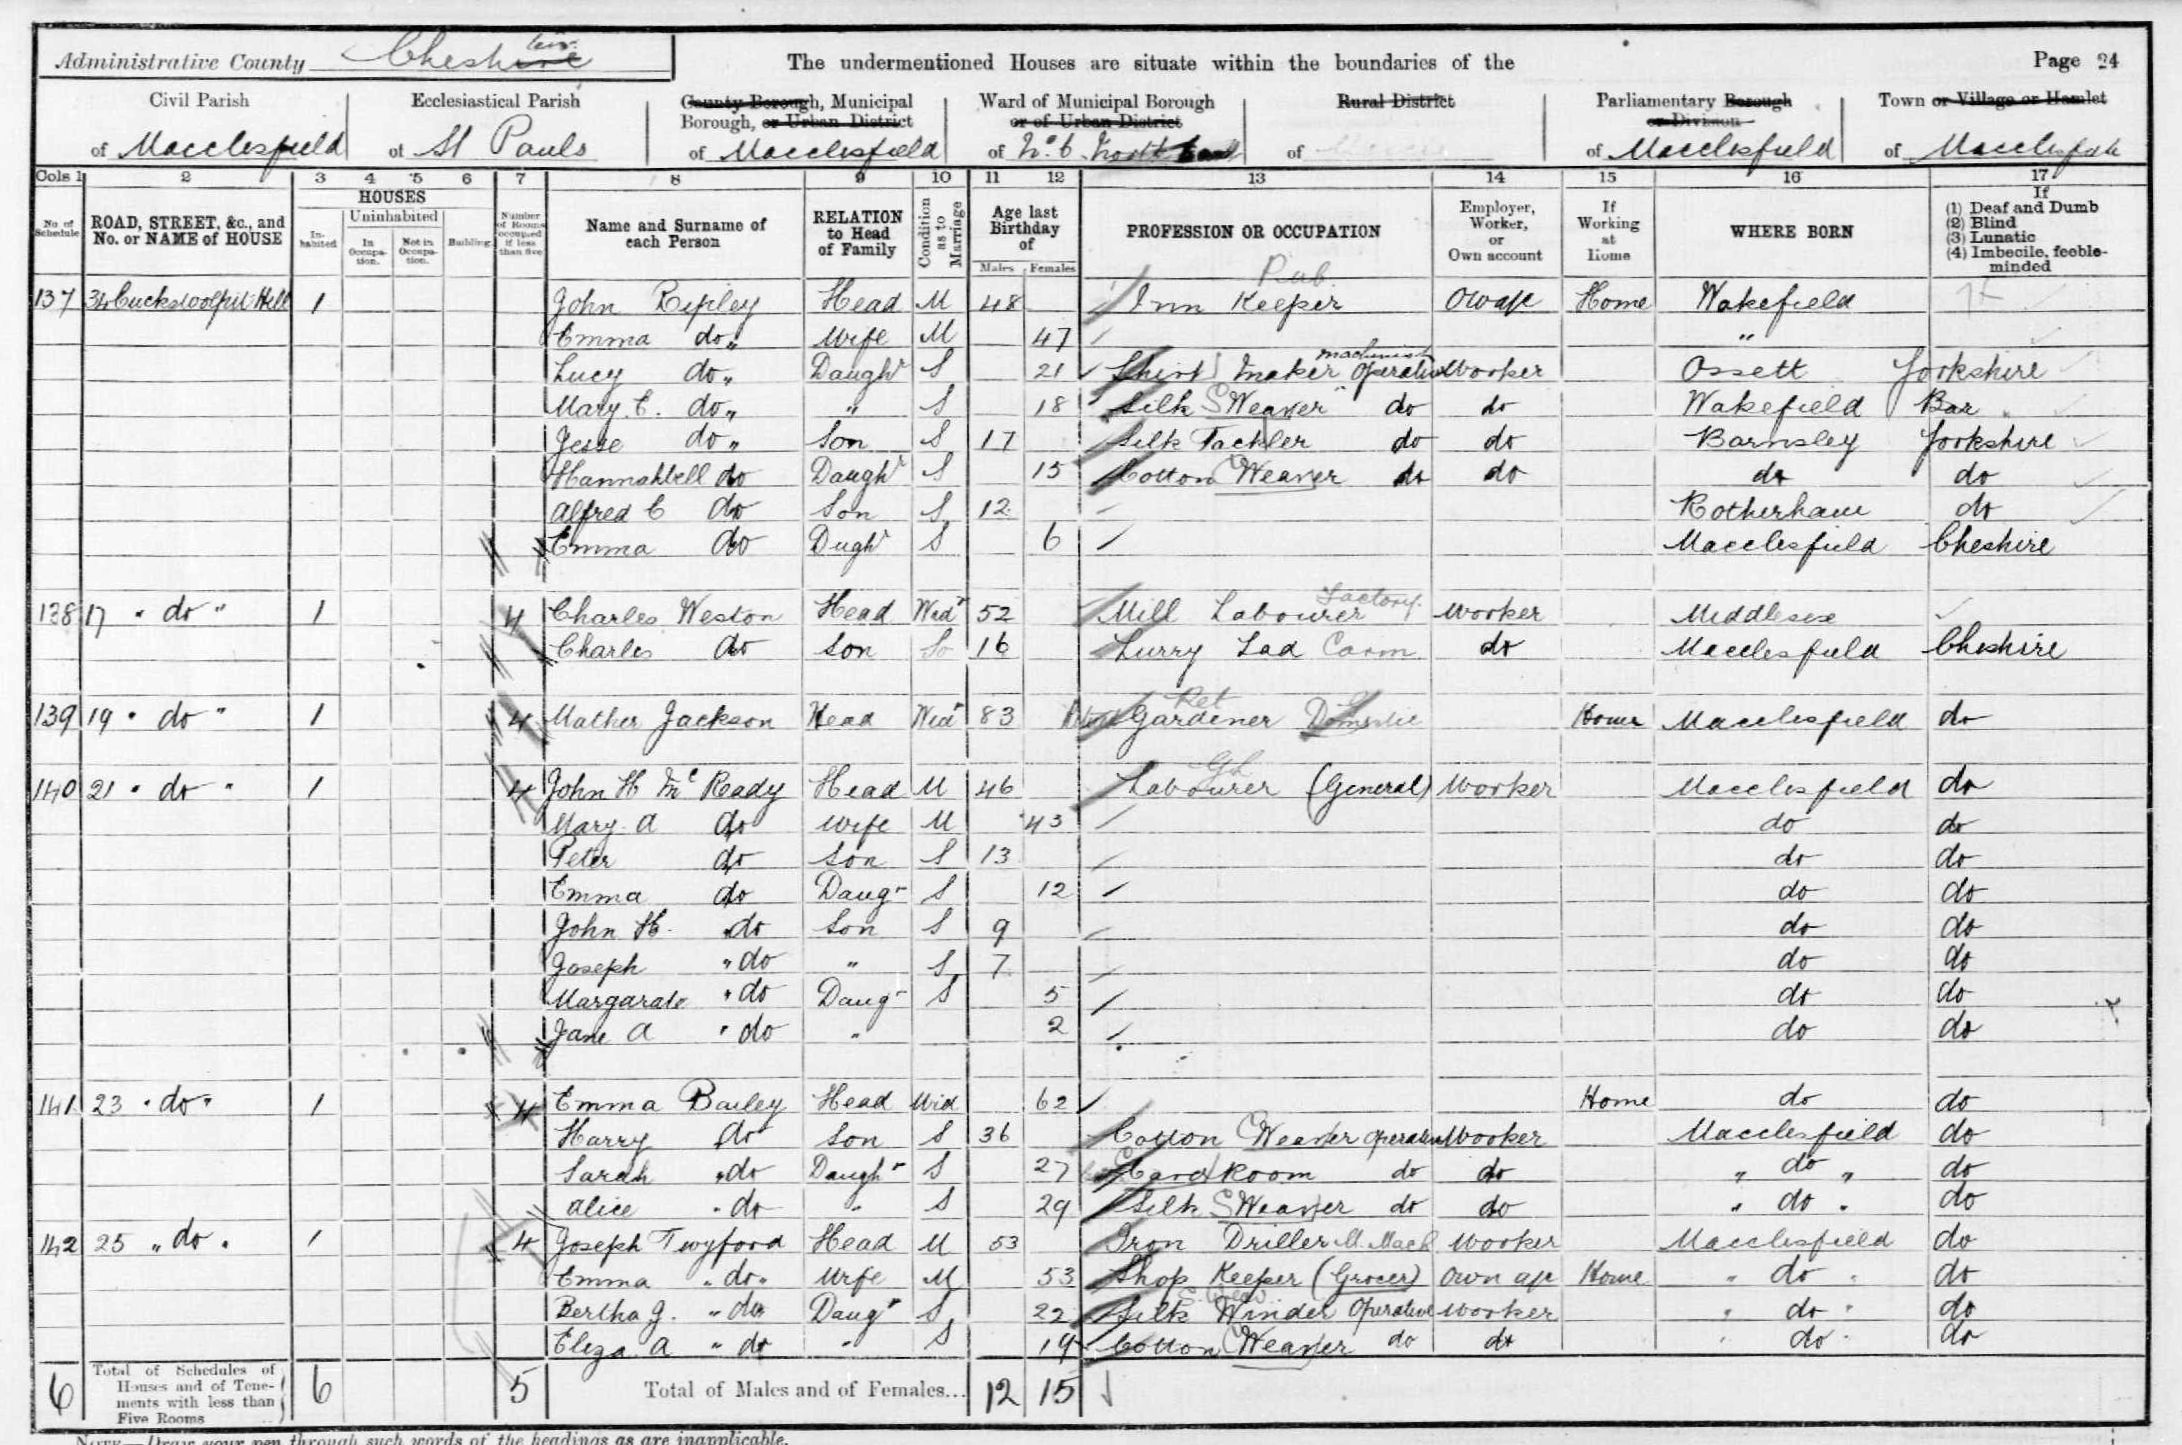 Administrative County Cheshire
The undermentioned Houses are situate within the boundaries of the
Page 24
Civil Parish of Macclesfield
Ecclesiastical Parish of St Pauls
County Borough, Municipal Borough, or Urban District of Macclesfield
Ward of Municipal Borough or of Urban District of No. 6. North East
Rural District of
Parliamentary Borough or Division of Macclesfield
Town or Village or Hamlet of Macclesfield
Cols 1 2 3 4 5 6 7 8 9 10 11 12 13 14 15 16 17
No of Schedule
ROAD, STREET, &c., and No. or NAME of HOUSE
HOUSES
Inhabited
Uninhabited
In Occupation.
Not in Occupation.
Building.
Number of Rooms occupied if less than five
Name and Surname of each Person
RELATION to Head of Family
Condition as to Marriage
Age last Birthday of
Males Females
PROFESSION OR OCCUPATION
Employer, Worker, or Own account
If Working at Home
WHERE BORN
If
(1) Deaf and Dumb
(2) Blind
(3) Lunatic
(4) Imbecile, feeble-minded
Pub.
137 34 Cuckstoolpit Hill 1 John Ripley Head M 48 Inn Keeper Own a/c Home Wakefield
Emma do " Wife M 47 "
machinist
Lucy do " Daughr S 21 Shirt Maker Operative Worker Ossett Yorkshire
Mary. E. do " " S 18 Silk S Weaver " do do Wakefield Bar "
Jesse do " Son S 17 Silk Tackler do do Barnsley Yorkshire
Hannahbell do Daughr S 15 Cotton Weaver do do do do
Alfred C do Son S 12 Rotherham do
Emma do Dughr S 6 Macclesfield Cheshire
Factory.
138 17 " do " 1 4 Charles Weston Head Widr 52 Mill Labourer Worker Middlesex
Charles do Son So 16 Lurry Lad Carm do Macclesfield Cheshire
Ret
139 19 " do " 1 4 Mather Jackson Head Widr 83 Gardener Domestic Home Macclesfield do
GL
140 21 " do " 1 4 John H McReady Head M 46 Labourer (General) Worker Macclesfield do
Mary. A do Wife M 43 do do
Peter do Son S 13 do do
Emma do Daug- S 12 do do
John H. " do Son S 9 do do
Joseph " do " S 7 do do
Margarate " do Daug- S 5 do do
Jane A " do " 2 do do
141 23 " do " 1 4 Emma Bailey Head Wid 62 Home do do
Harry do Son S 36 Cotton Weaver Operative Worker Macclesfield do
Sarah " do Daughr S 27 Card Room do do " do " do
Alice " do " S 29 Silk S Weaver do do " do " do
142 25 " do " 1 4 Joseph Twyford Head M 53 Iron Driller M. Mach Worker Macclesfield do
Emma " do " Wife M 53 Shop Keeper (Grocer) Own a/c Home " do " do
Bertha J. " do Daugr S 22 Silk Winder Operative Worker " do " do
Eliza. A " do " S 19 Cotton Weaver do do " do " do
6 Total of Schedules of Houses and of Tenements with less than Five Rooms 6 5 Total of Males and of Females... 12 15
NOTE—Draw your pen through such words of the headings as are inapplicable.